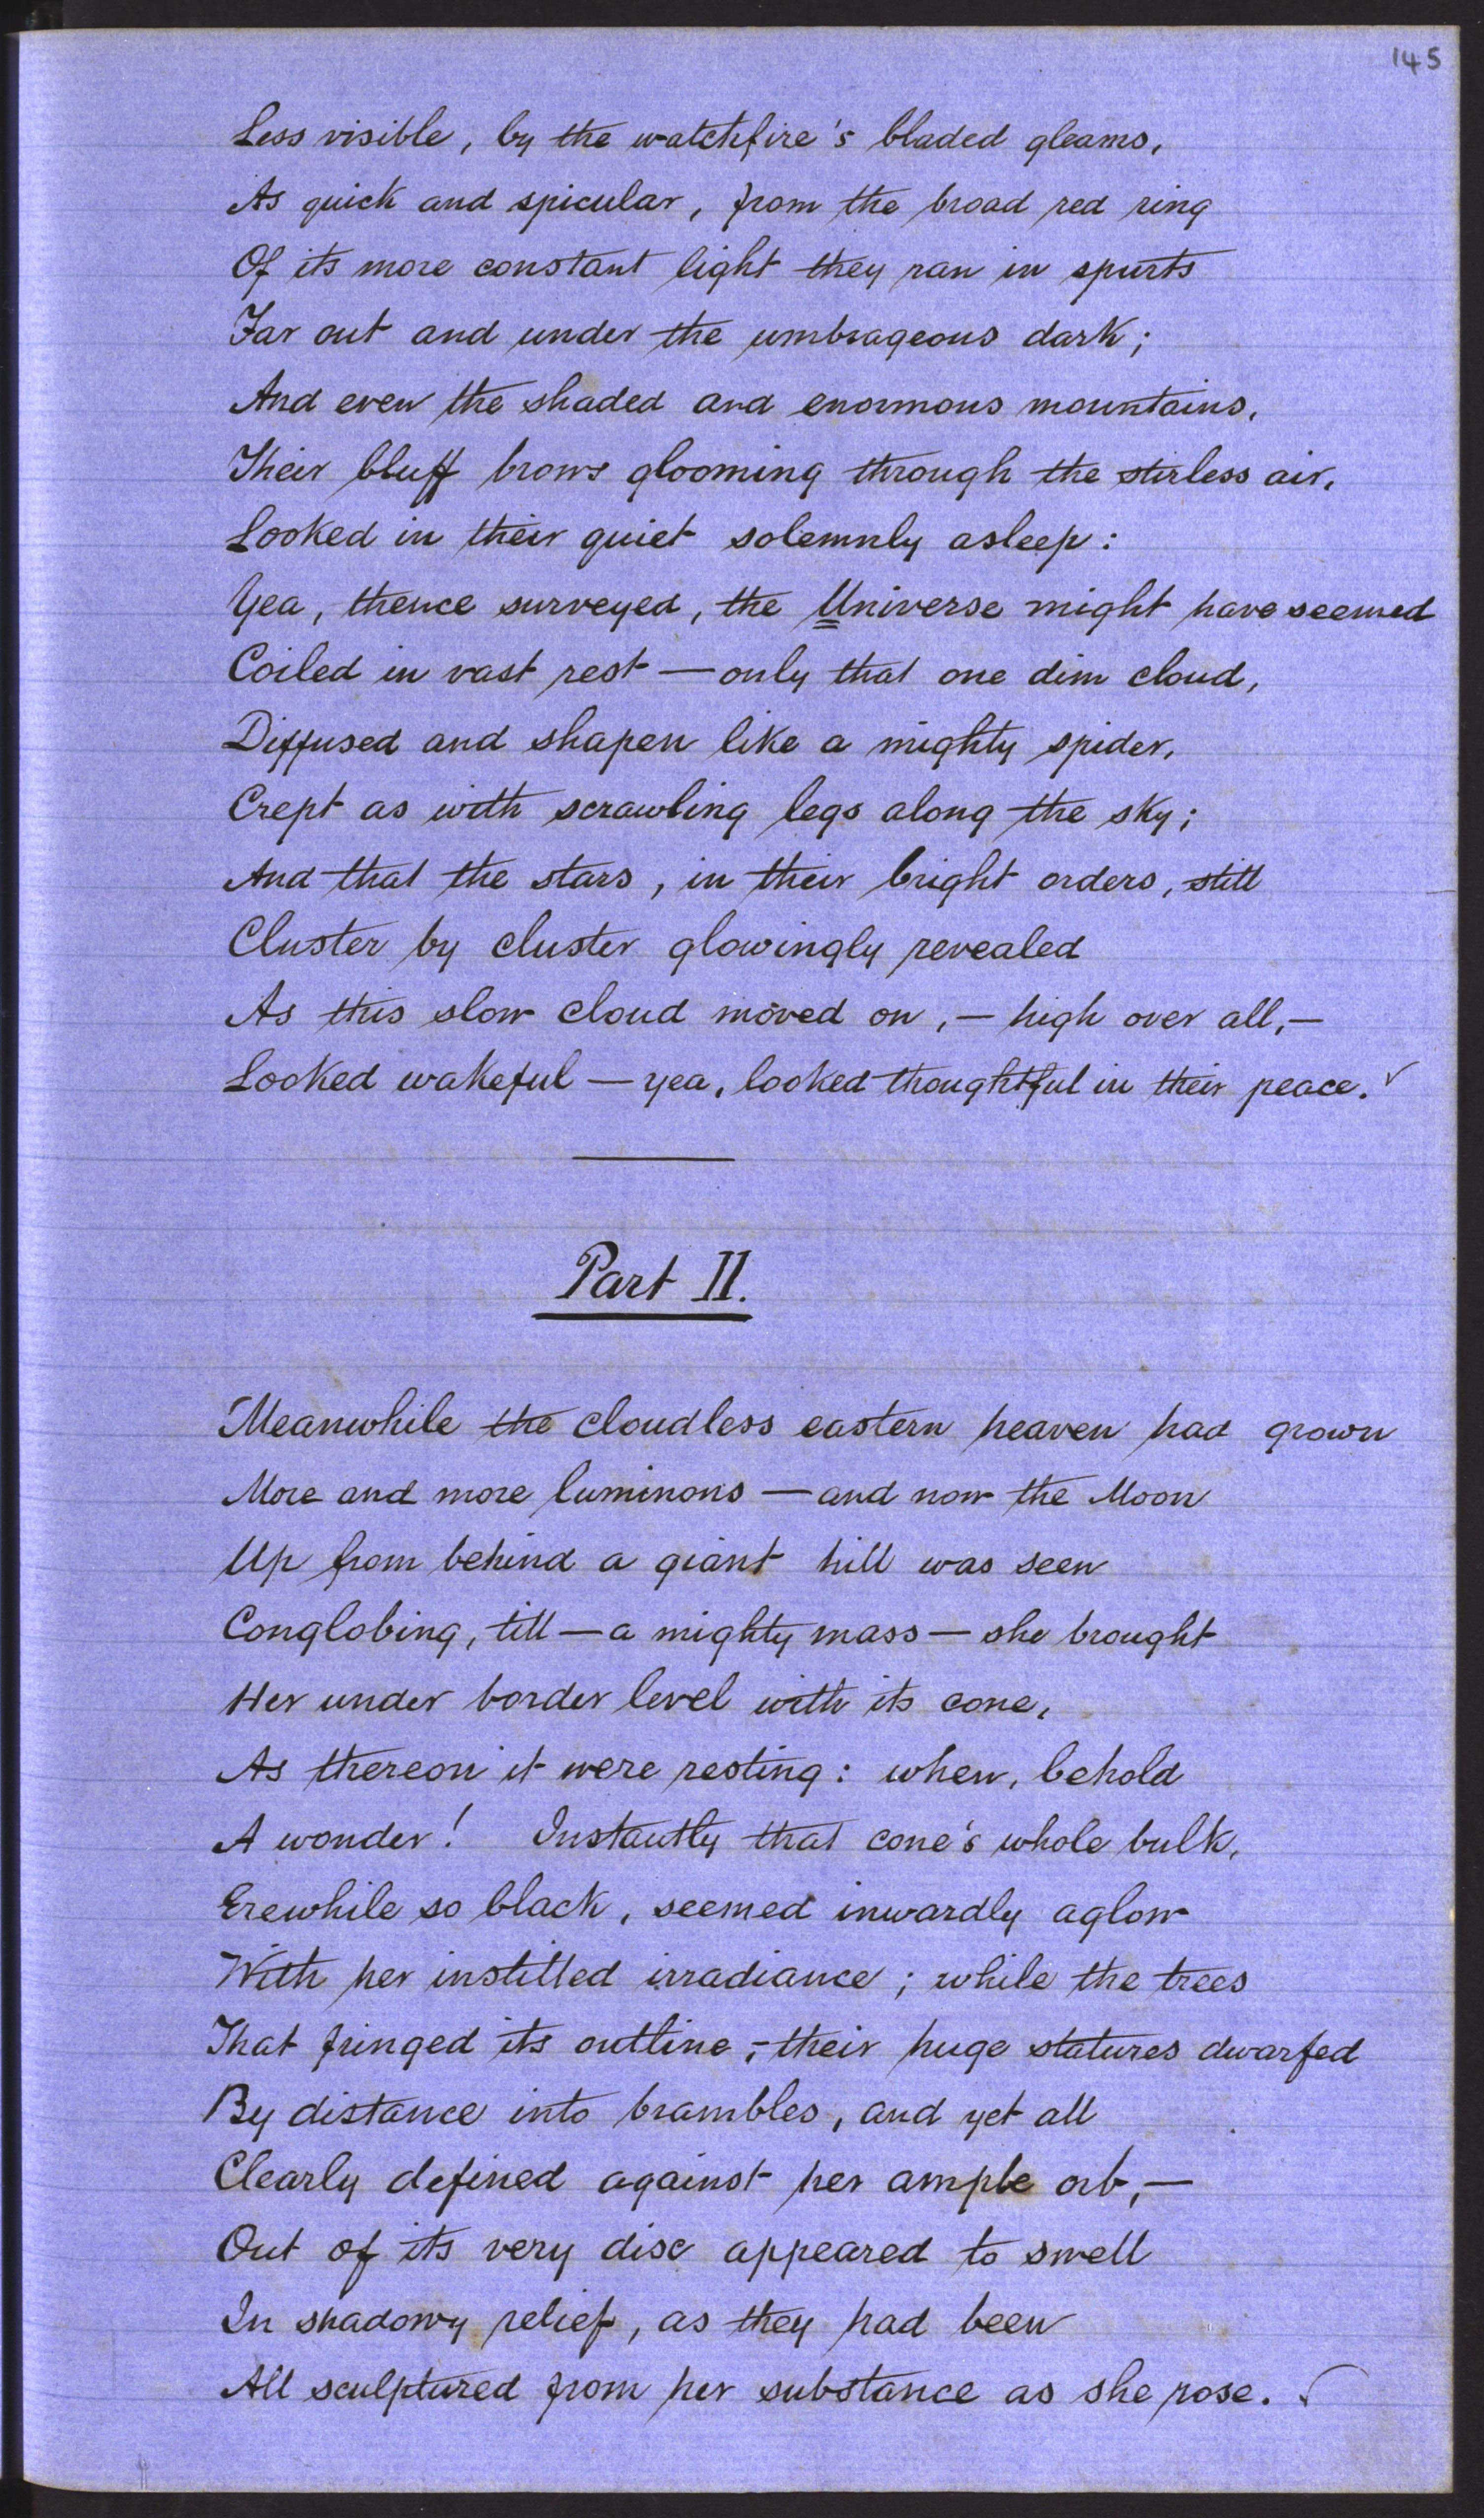 145
Less visible, by the watchfire's bladed gleams,
As quick and spicular, from the broad red ring
Of its more constant light they ran in spurts
Far out and under the umbrageous dark;
And even the shaded and enormous mountains,
Their bluff brows glooming through the stirless air,
Looked in their quiet solemnly asleep:
Yea, thence surveyed, the Universe might have seemed
Coiled in vast rest — only that one dim cloud,
Diffused and shapen like a mighty spider,
Crept as with scrawling legs along the sky;
And that the stars, in their bright orders, still
Cluster by cluster glowingly revealed
As this slow cloud moved on, — high over all, —
Looked wakeful — yea, looked thoughtful in their peace.
Part II.
Meanwhile the cloudless eastern heaven had grown
More and more luminous — and now the Moon
Up from behind a giant hill was seen
Conglobing, till — a mighty mass — she brought
Her under border level with its cone,
As thereon it were resting: when, behold
A wonder! Instantly that cone's whole bulk,
Erewhile so black, seemed inwardly aglow
With her instilled irradiance; while the trees
That fringed its outline, — their huge statures dwarfed
By distance into brambles, and yet all
Clearly defined against her ample orb, —
Out of its very disc appeared to swell
In shadowy relief, as they had been
All sculptured from her substance as she rose.